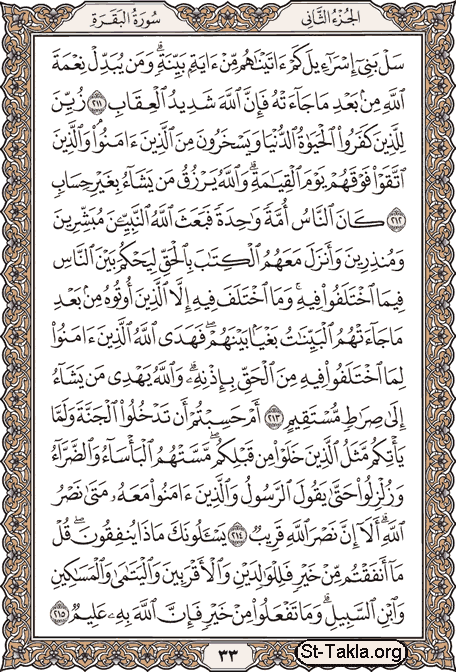 الجزء الثاني
سورة البقرة
سَلْ بَنِىٓ إِسْرَٰٓءِيلَ كَمْ ءَاتَيْنَٰهُم مِّنْ ءَايَةٍۭ بَيِّنَةٍ ۗ وَمَن يُبَدِّلْ نِعْمَةَ
ٱللَّهِ مِنۢ بَعْدِ مَا جَآءَتْهُ فَإِنَّ ٱللَّهَ شَدِيدُ ٱلْعِقَابِ ٢١١ زُيِّنَ
لِلَّذِينَ كَفَرُوا۟ ٱلْحَيَوٰةُ ٱلدُّنْيَا وَيَسْخَرُونَ مِنَ ٱلَّذِينَ ءَامَنُوا۟ ۘ وَٱلَّذِينَ
ٱتَّقَوْا۟ فَوْقَهُمْ يَوْمَ ٱلْقِيَٰمَةِ ۗ وَٱللَّهُ يَرْزُقُ مَن يَشَآءُ بِغَيْرِ حِسَابٍ
٢١٢ كَانَ ٱلنَّاسُ أُمَّةً وَٰحِدَةً فَبَعَثَ ٱللَّهُ ٱلنَّبِيِّۦنَ مُبَشِّرِينَ
وَمُنذِرِينَ وَأَنزَلَ مَعَهُمُ ٱلْكِتَٰبَ بِٱلْحَقِّ لِيَحْكُمَ بَيْنَ ٱلنَّاسِ
فِيمَا ٱخْتَلَفُوا۟ فِيهِ ۚ وَمَا ٱخْتَلَفَ فِيهِ إِلَّا ٱلَّذِينَ أُوتُوهُ مِنۢ بَعْدِ
مَا جَآءَتْهُمُ ٱلْبَيِّنَٰتُ بَغْيًۢا بَيْنَهُمْ ۖ فَهَدَى ٱللَّهُ ٱلَّذِينَ ءَامَنُوا۟
لِمَا ٱخْتَلَفُوا۟ فِيهِ مِنَ ٱلْحَقِّ بِإِذْنِهِۦ ۗ وَٱللَّهُ يَهْدِى مَن يَشَآءُ
إِلَىٰ صِرَٰطٍ مُّسْتَقِيمٍ ٢١٣ أَمْ حَسِبْتُمْ أَن تَدْخُلُوا۟ ٱلْجَنَّةَ وَلَمَّا
يَأْتِكُم مَّثَلُ ٱلَّذِينَ خَلَوْا۟ مِن قَبْلِكُم ۖ مَّسَّتْهُمُ ٱلْبَأْسَآءُ وَٱلضَّرَّآءُ
وَزُلْزِلُوا۟ حَتَّىٰ يَقُولَ ٱلرَّسُولُ وَٱلَّذِينَ ءَامَنُوا۟ مَعَهُۥ مَتَىٰ نَصْرُ
ٱللَّهِ ۗ أَلَآ إِنَّ نَصْرَ ٱللَّهِ قَرِيبٌ ٢١٤ يَسْـَٔلُونَكَ مَاذَا يُنفِقُونَ ۖ قُلْ
مَآ أَنفَقْتُم مِّنْ خَيْرٍ فَلِلْوَٰلِدَيْنِ وَٱلْأَقْرَبِينَ وَٱلْيَتَٰمَىٰ وَٱلْمَسَٰكِينِ
وَٱبْنِ ٱلسَّبِيلِ ۗ وَمَا تَفْعَلُوا۟ مِنْ خَيْرٍ فَإِنَّ ٱللَّهَ بِهِۦ عَلِيمٌ ٢١٥
٣٣
St-Takla.org